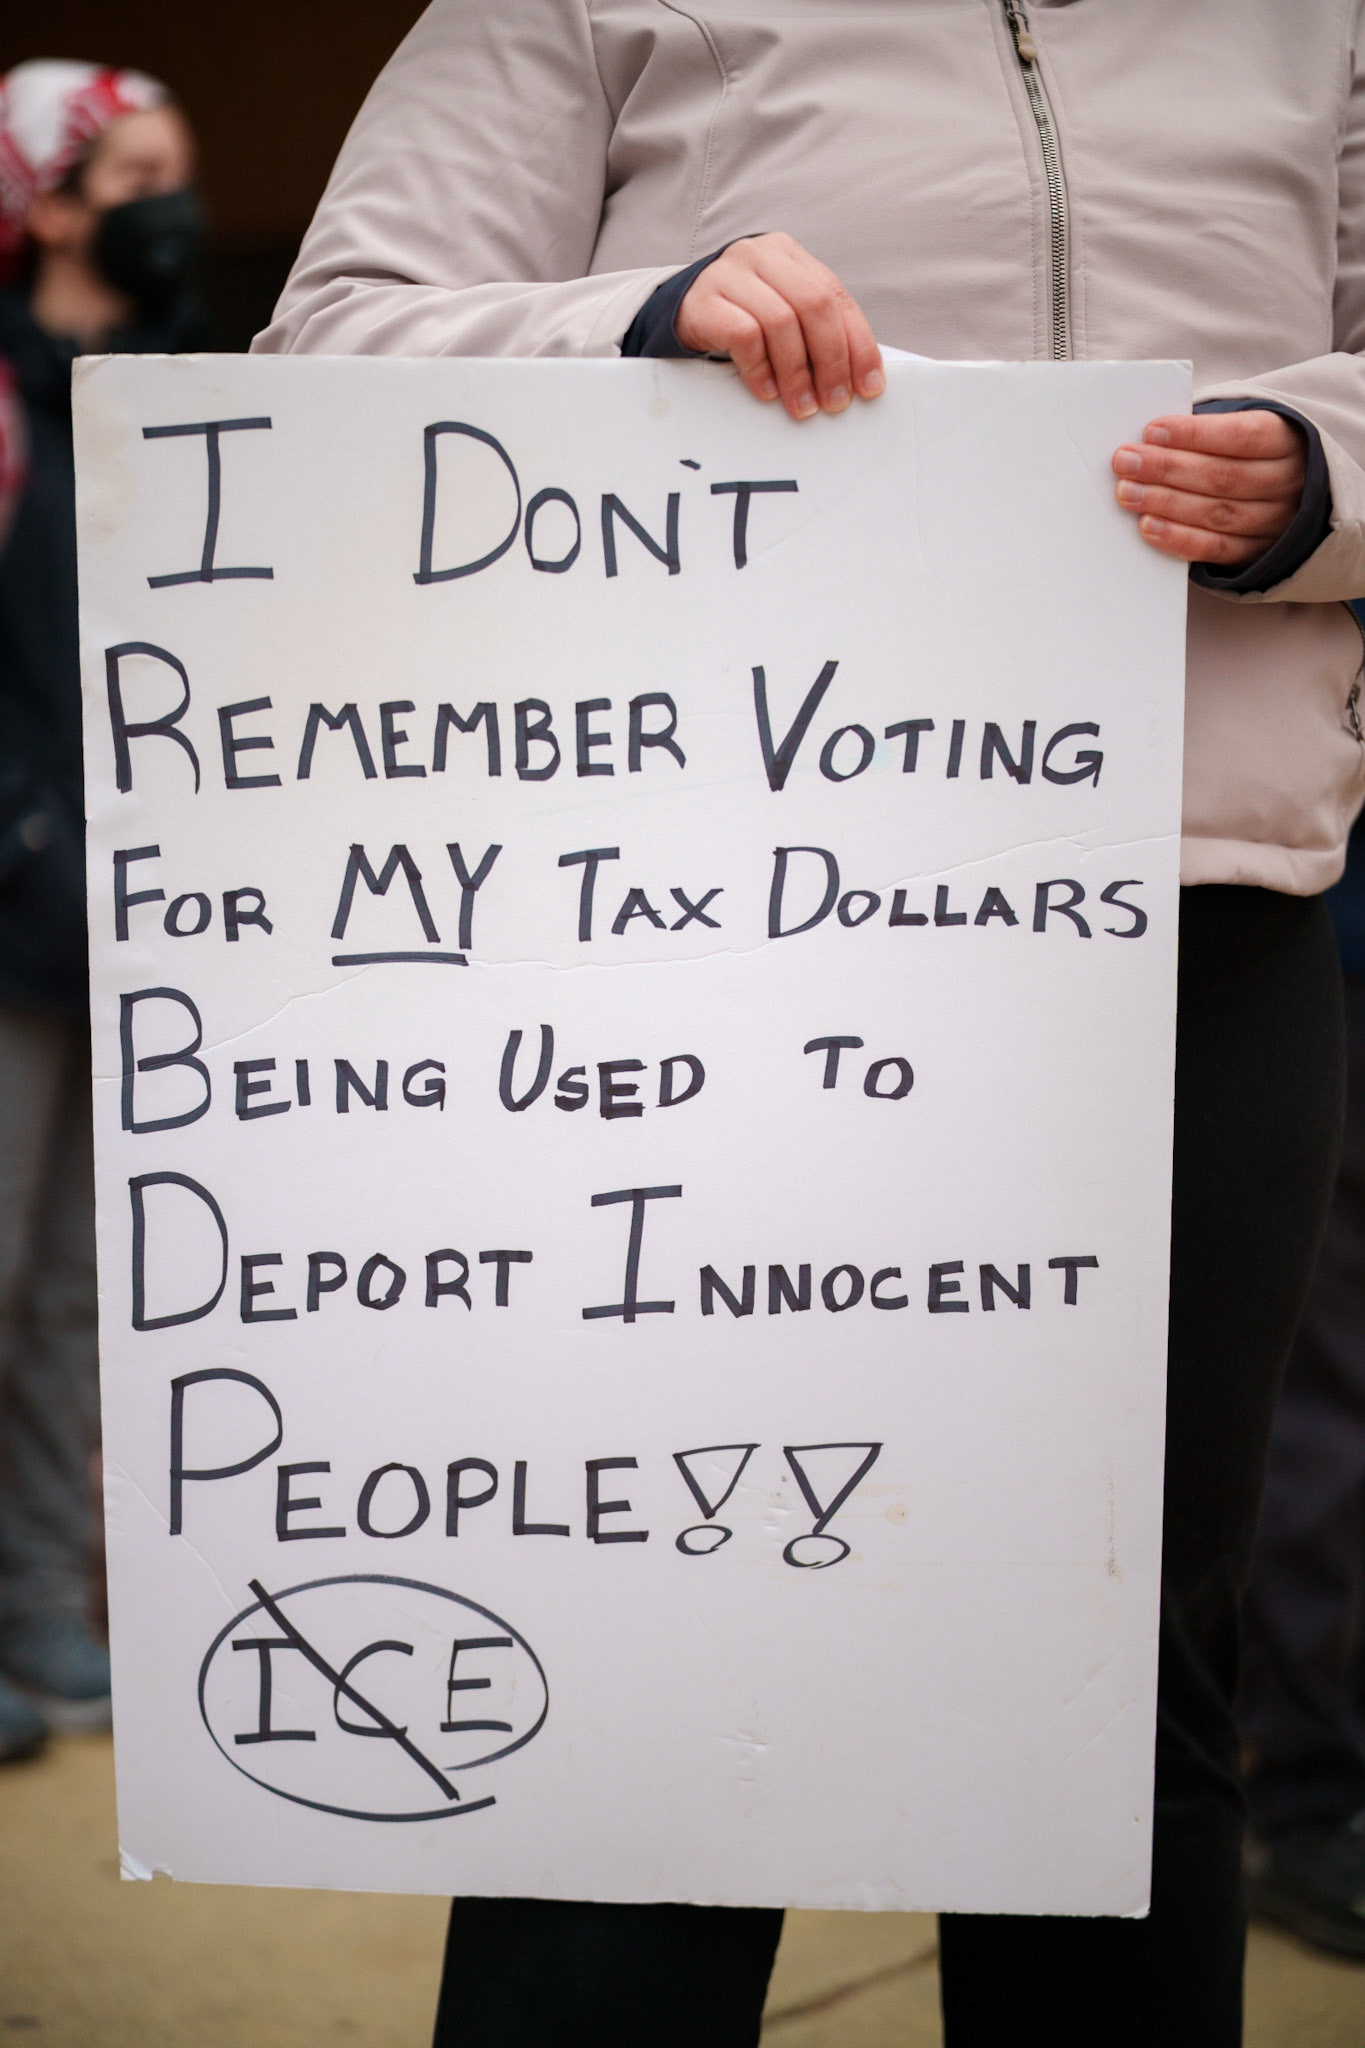 I DON'T
REMEMBER VOTING
FOR MY TAX DOLLARS
BEING USED TO
DEPORT INNOCENT
PEOPLE!!
ICE